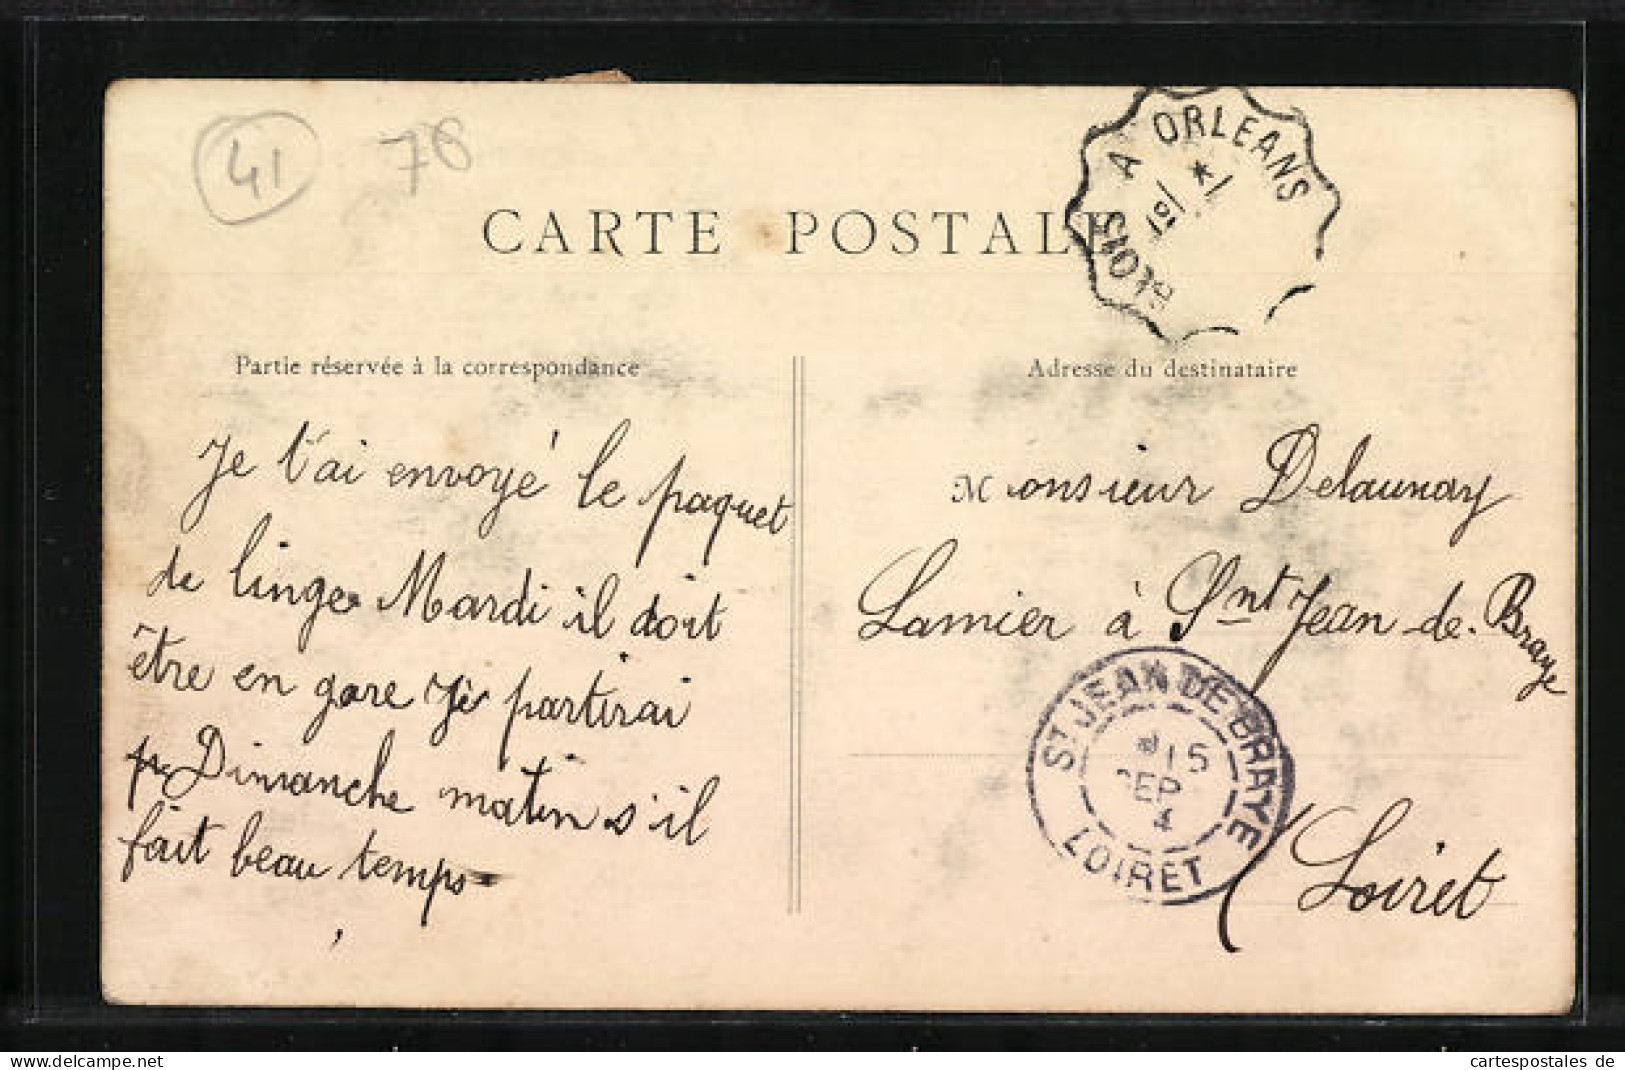 41 76
CARTE POSTALE
BLOIS A ORLEANS
Partie réservée à la correspondance
Je t'ai envoyé le paquet
de linge Mardi il doit
être en gare Je partirai
Dimanche matin s'il
fait beau temps
Adresse du destinataire
Monsieur Delaunay
Lamier à Snt Jean de Braye
(Loiret
ST JEAN DE BRAYE
15
SEP
4
LOIRET
cartespostales de